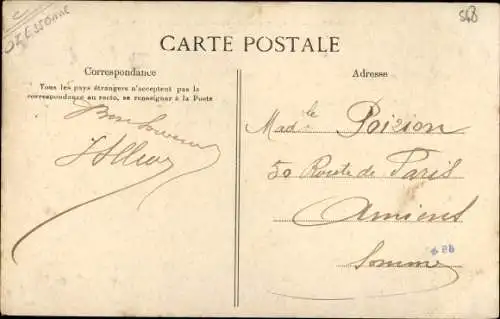 548
CARTE POSTALE
Correspondance
Tous les pays étrangers n'acceptent pas la
correspondance au recto, se renseigner à la Poste
Bon Souvenir
Adresse
Mad^lle Poizion
50 Route de Paris
Amiens
Somme